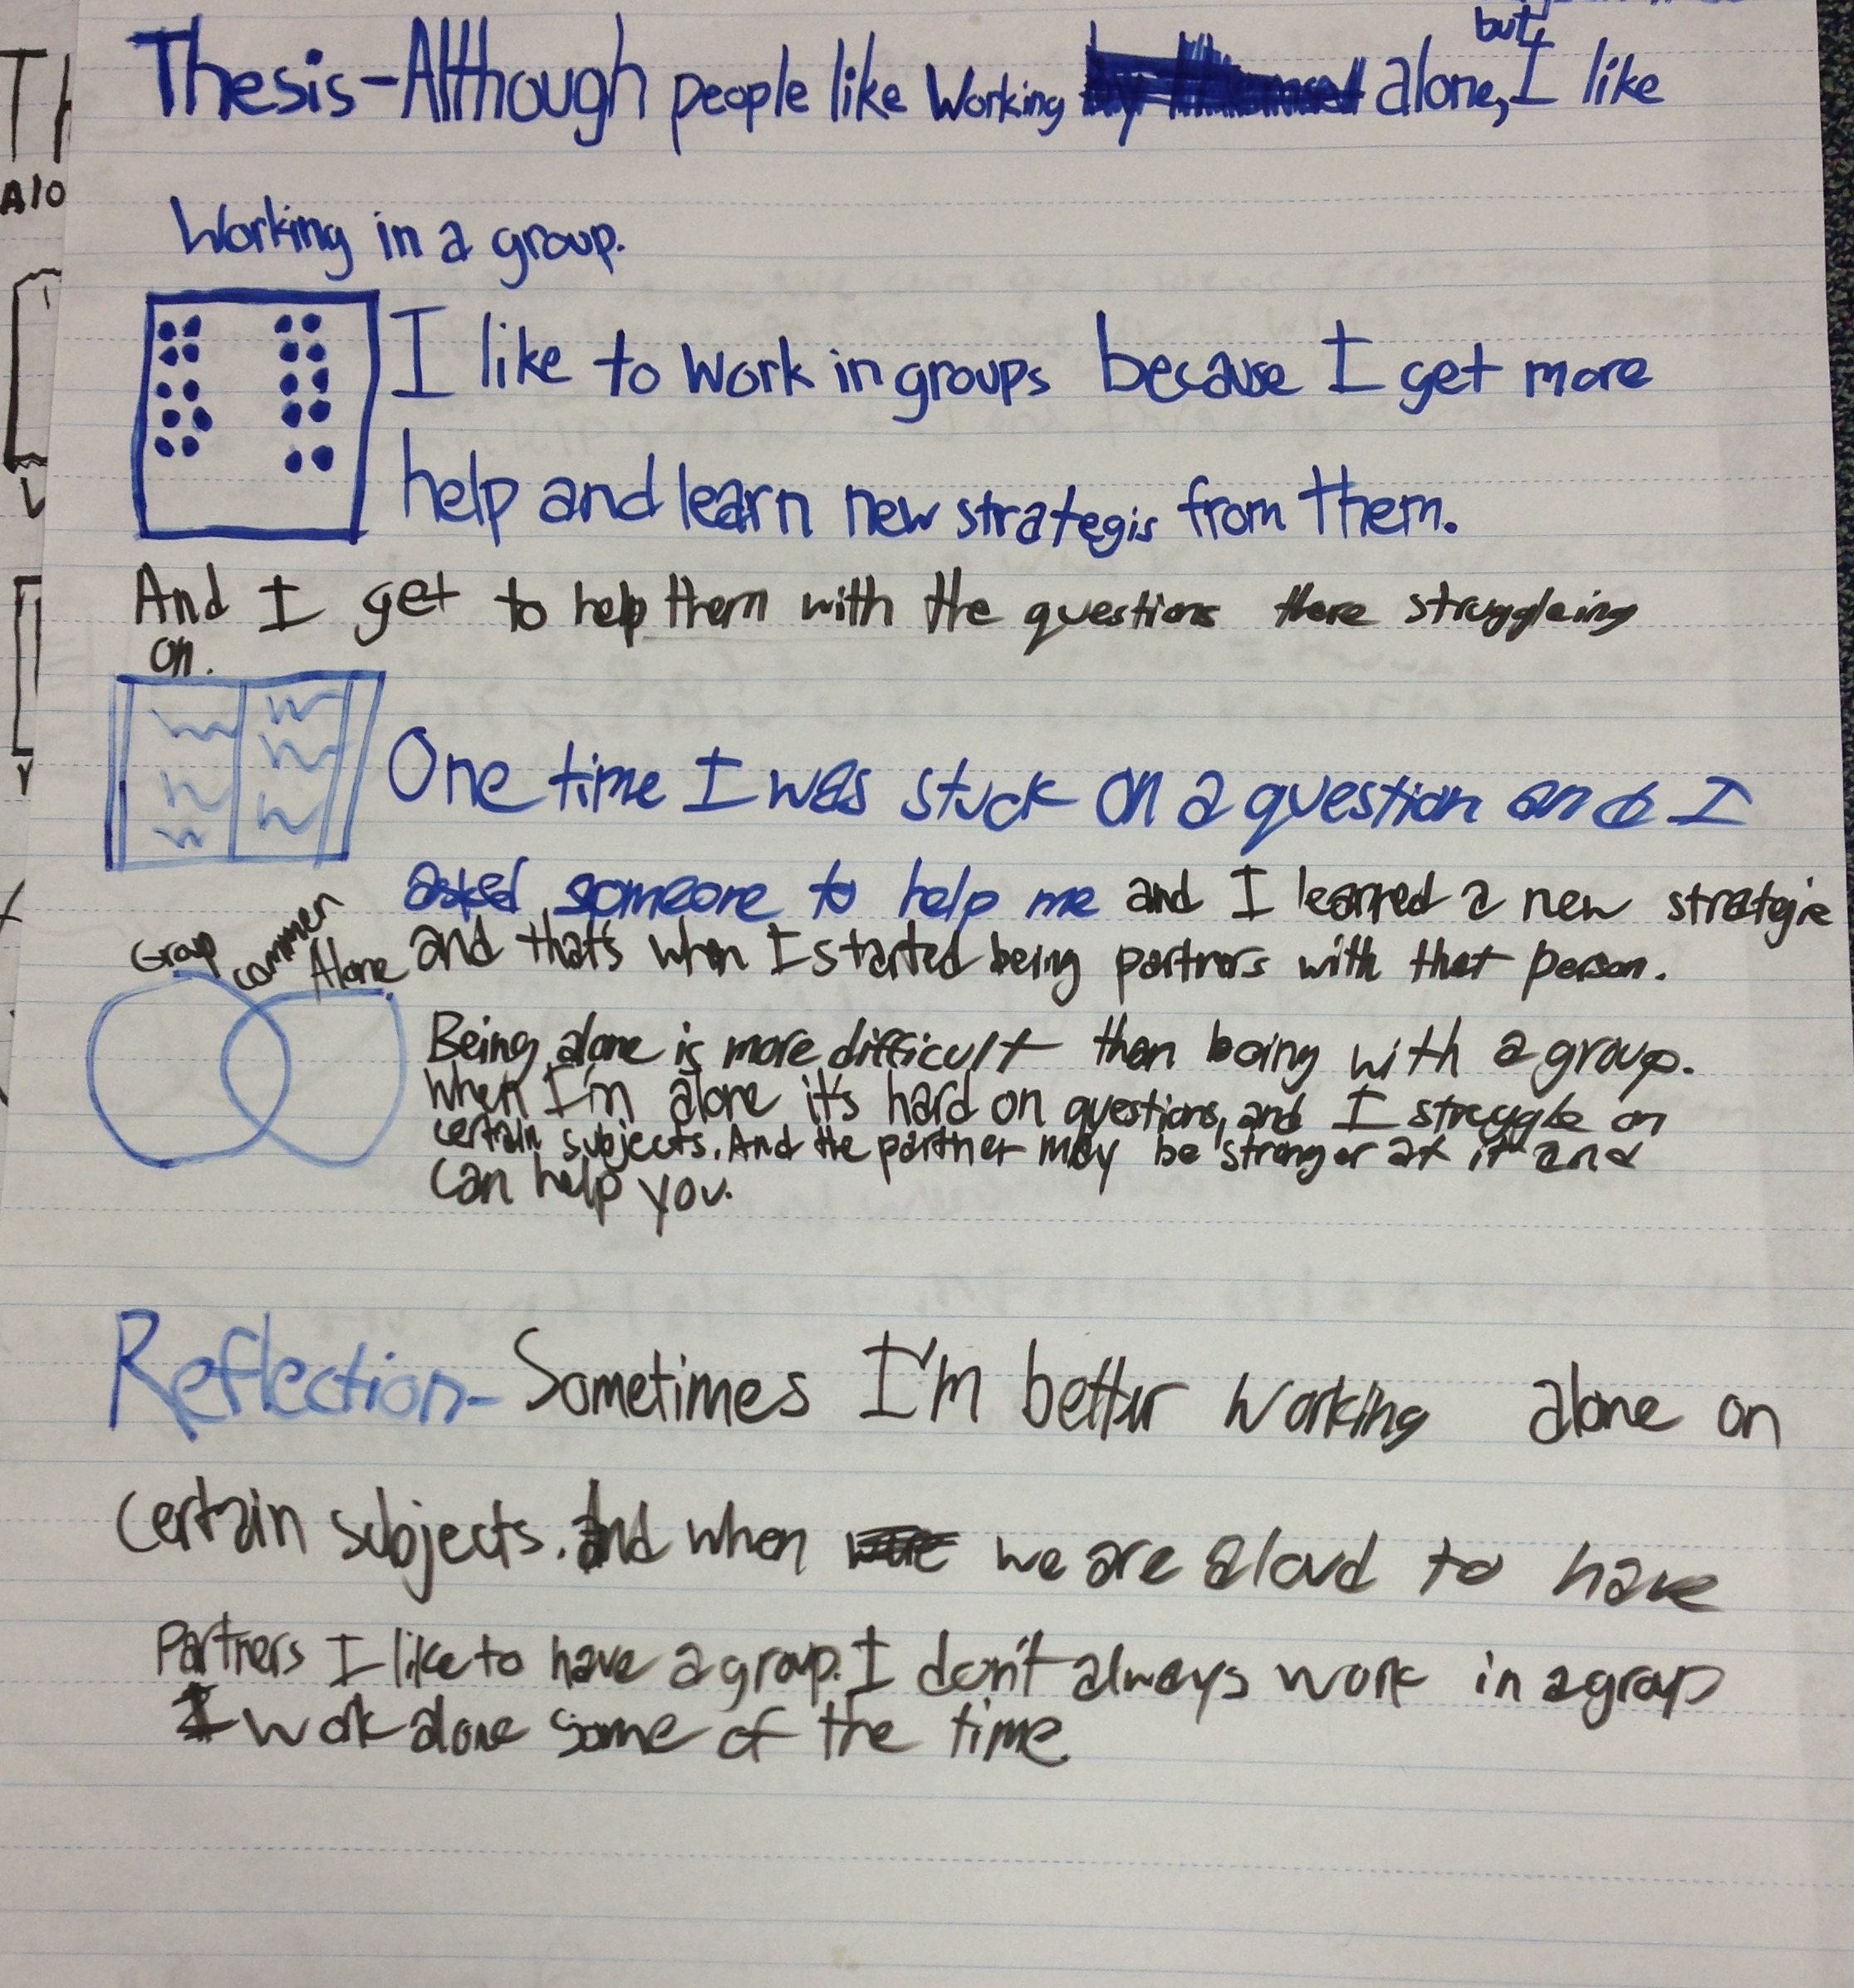 but,
Thesis-Although people like Working alone, I like
Working in a group.
I like to work in groups because I get more
help and learn new strategis from them.
And I get to help them with the questions there struggleing
on.
One time I was stuck on a question and I
asked someone to help me and I learned a new strategie
and that's when I started being partners with that person.
Group
commen
Alone
Being alone is more difficult than being with a group.
When I'm alone it's hard on questions, and I struggle on
certain subjects. And the partner may be stronger at it and
can help you.
Reflection- Sometimes I'm better working alone on
certain subjects. And when we are aloud to have
Partners I like to have a group. I don't always work in a group
I work alone some of the time.
A10